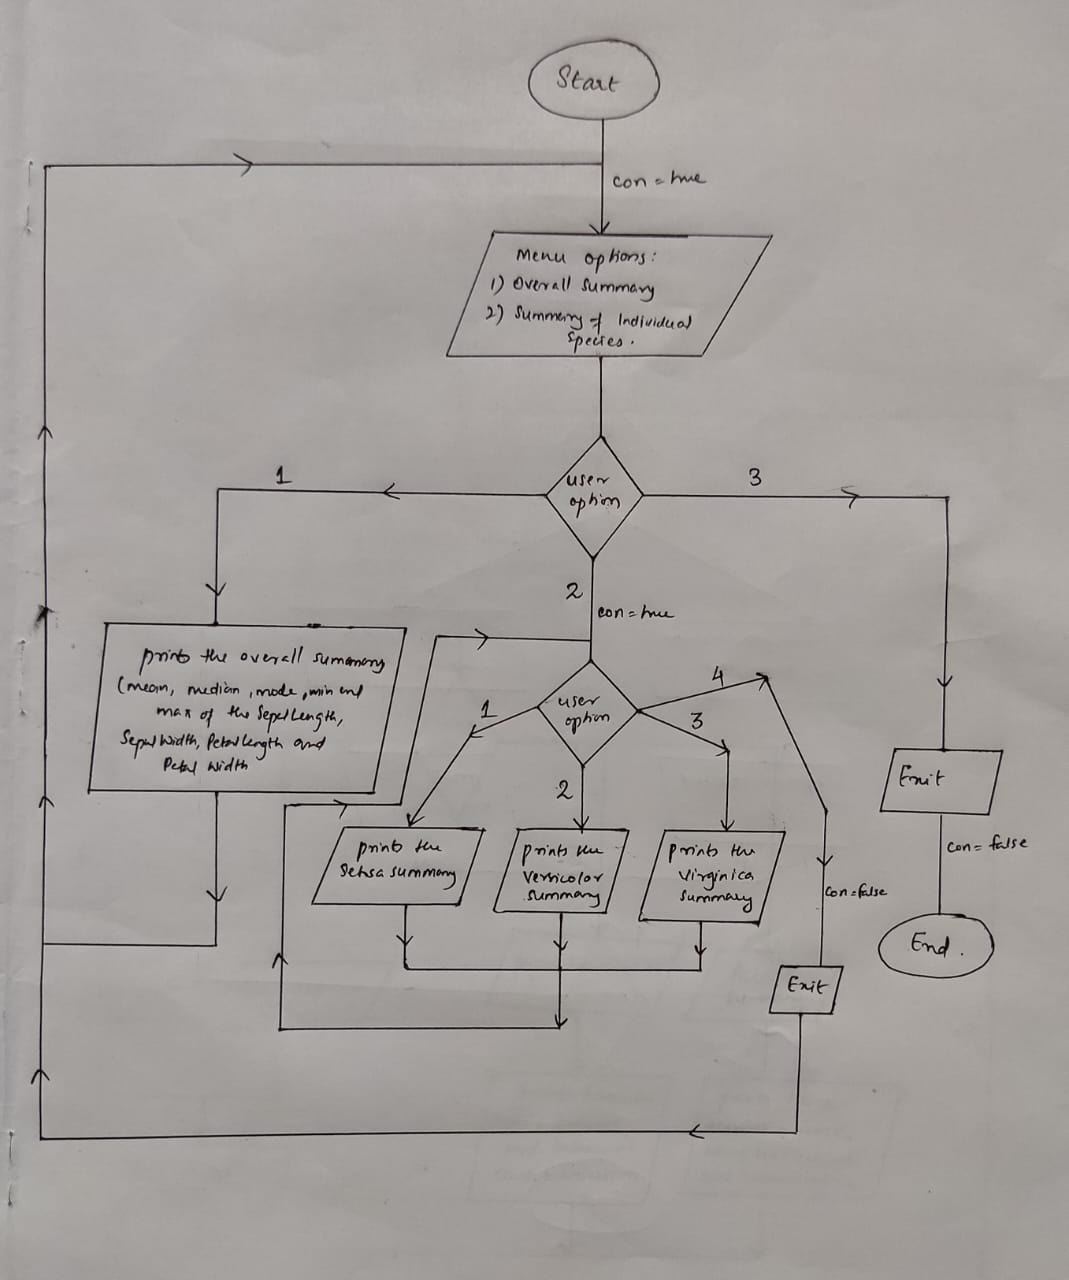 Start
con = true
Menu options:
1) Overall Summary
2) Summary of Individual
Species.
user
option
1
3
2
con = true
prints the overall summary
(mean, median, mode, min and
max of the SepalLength,
SepalWidth, PetalLength and
Petal Width
user
option
1
2
3
4
prints the
Setosa summary
prints the
Versicolor
summary
prints the
Virginica
summary
Exit
con = false
con = false
End.
Exit